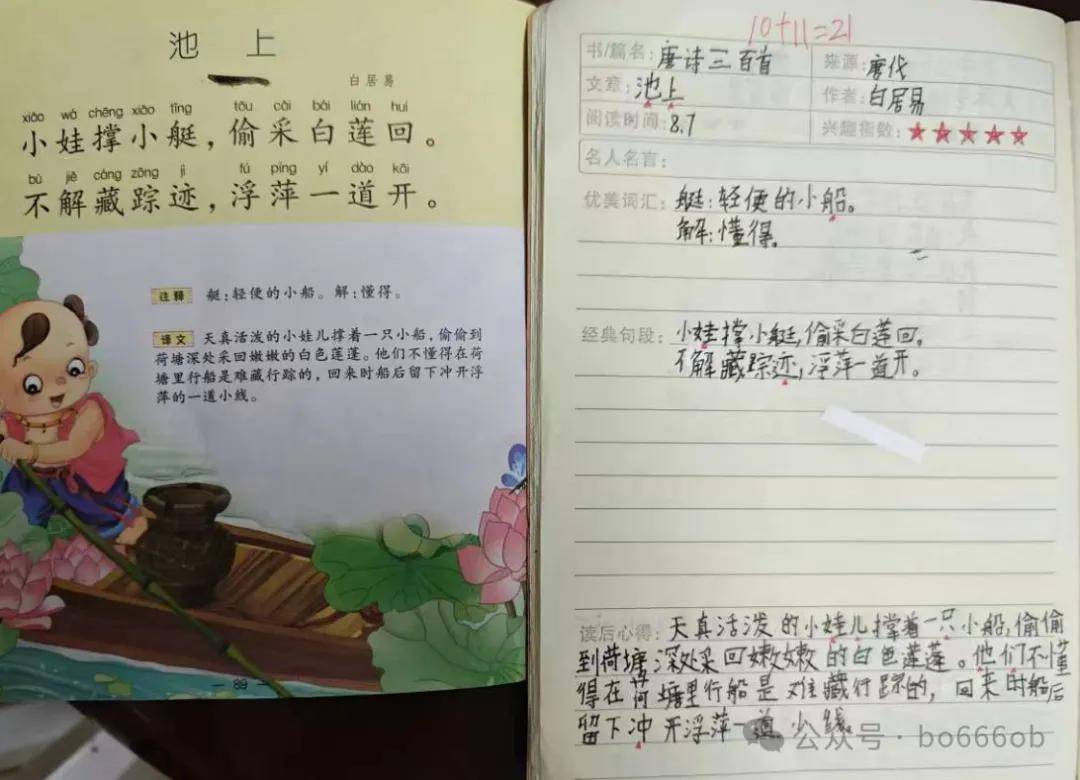 池 上
白居易
xiǎo wá chēng xiǎo tǐng tōu cǎi bái lián huí
小娃撑小艇，偷采白莲回。
bù jiě cáng zōng jì fú píng yí dào kāi
不解藏踪迹，浮萍一道开。
注释 艇：轻便的小船。解：懂得。
译文 天真活泼的小娃儿撑着一只小船，偷偷到
荷塘深处采回嫩嫩的白色莲蓬。他们不懂得在荷
塘里行船是难藏行踪的，回来时船后留下冲开浮
萍的一道小线。
— 89 —
10+11=21
书/篇名：唐诗三百首 来源：唐代
文章：池上 作者：白居易
阅读时间：8.7 兴趣指数：★★★★★
名人名言：
优美词汇：艇：轻便的小船。
解：懂得。
经典句段：小娃撑小艇，偷采白莲回。
不解藏踪迹，浮萍一道开。
读后心得：天真活泼的小娃儿撑着一只小船，偷偷
到荷塘深处采回嫩嫩的白色莲蓬。他们不懂
得在荷塘里行船是难藏行踪的，回来时船后
留下冲开浮萍一道小线。
公众号 · bo666ob